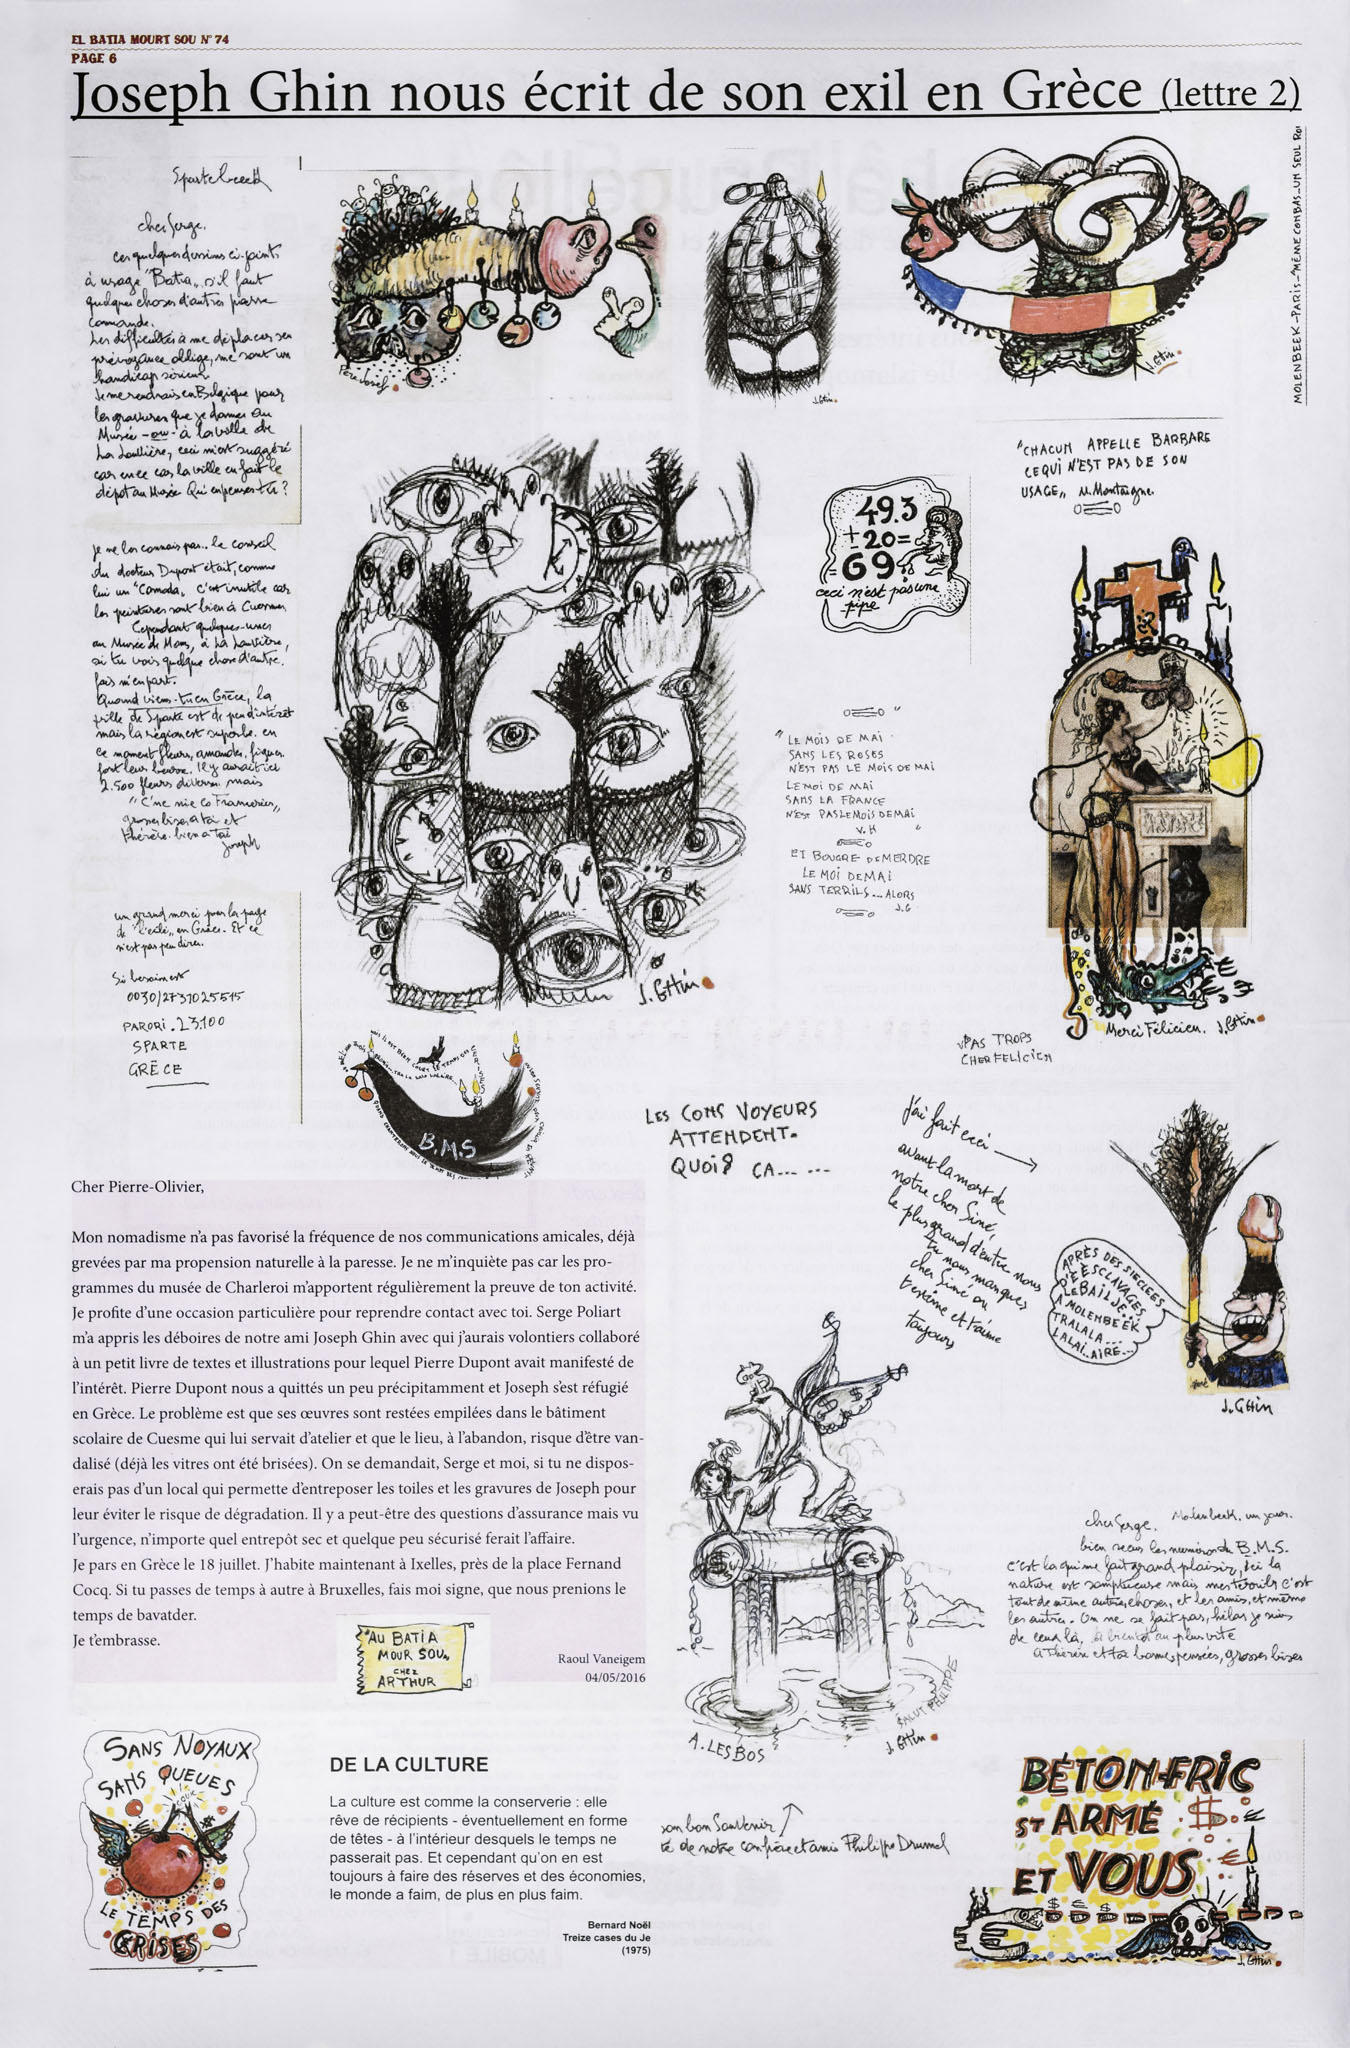 EL BATIA MOURT SOU N° 74
PAGE 6
Joseph Ghin nous écrit de son exil en Grèce (lettre 2)
Spartebeeck
cher Serge.
ces quelques dessins ci-joints
à usage "Batia,, s'il faut
quelques choses d'autres passe
commande.
Les difficultés à me déplacer
prévoyance oblige, me sont un
handicap sérieux
Je me rendrais en Belgique pour
les gravures que je donne au
Musée - ou - à la ville de
La Louvière, ceci m'est suggéré
car en ce cas la ville en fait le
dépôt au Musée Qui en penses-tu ?
je ne les connais pas.. le conseil
du docteur Dupont était, comme
lui un "Camada, c'est inutile car
les peintures sont bien à Cuesmes
Cependant quelques-unes
au Musée de Mons, à La Louvière,
si tu vois quelque chose d'autre.
fais m'en part.
Quand viens-tu en Grèce, la
ville de Sparte est de peu d'intérêt
mais la région est superbe. en
ce moment fleurs, amandes, figues
font leur beurre. Il y aurait ici
2.500 fleurs diverses mais
"C'ne nie co Frameries,,
grosses bises à toi et
Thérèse. bien à toi
Joseph
un grand merci pour la page
de "l'exilé,, en Grèce. Et ce
n'est pas peu dire.
Si besoin est
0030/2731025515
PARORI. 23100
SPARTE
GRÈCE
Père Josef.
J. Ghin.
J. Ghin.
MOLENBEEK-PARIS-MÊME COMBAS-UN SEUL ROI
"CHACUN APPELLE BARBARE
CE QUI N'EST PAS DE SON
USAGE,, M. Montaigne.
49.3
+20=
=69
ceci n'est pas une
pipe
"LE MOIS DE MAI
SANS LES ROSES
N'EST PAS LE MOIS DE MAI
LE MOI DE MAI
SANS LA FRANCE
N'EST PAS LE MOIS DE MAI
V.H "
ET BOUGRE DE MERDRE
LE MOI DE MAI
SANS TERRILS... ALORS
J.G
J. GHIN.
Merci Félicien. J. Ghin.
PAS TROPS
CHER FELICIEN
B.M.S
LES CONS VOYEURS
ATTENDENT.
QUOI? ÇA... ...
j'ai fait ceci
avant la mort de
notre cher Siné,
le plus grand d'entre nous
tu nous manques
cher Siné on
t'estime et t'aime
toujours
APRÈS DES SIECLES
D'EESCLAVAGES
LE BAIL JE...
A MOLENBEEK
TRALALA...
LALAI..AIRE...
J. GHIN
Cher Pierre-Olivier,
Mon nomadisme n'a pas favorisé la fréquence de nos communications amicales, déjà
grevées par ma propension naturelle à la paresse. Je ne m'inquiète pas car les pro-
grammes du musée de Charleroi m'apportent régulièrement la preuve de ton activité.
Je profite d'une occasion particulière pour reprendre contact avec toi. Serge Poliart
m'a appris les déboires de notre ami Joseph Ghin avec qui j'aurais volontiers collaboré
à un petit livre de textes et illustrations pour lequel Pierre Dupont avait manifesté de
l'intérêt. Pierre Dupont nous a quittés un peu précipitamment et Joseph s'est réfugié
en Grèce. Le problème est que ses œuvres sont restées empilées dans le bâtiment
scolaire de Cuesme qui lui servait d'atelier et que le lieu, à l'abandon, risque d'être van-
dalisé (déjà les vitres ont été brisées). On se demandait, Serge et moi, si tu ne dispos-
erais pas d'un local qui permette d'entreposer les toiles et les gravures de Joseph pour
leur éviter le risque de dégradation. Il y a peut-être des questions d'assurance mais vu
l'urgence, n'importe quel entrepôt sec et quelque peu sécurisé ferait l'affaire.
Je pars en Grèce le 18 juillet. J'habite maintenant à Ixelles, près de la place Fernand
Cocq. Si tu passes de temps à autre à Bruxelles, fais moi signe, que nous prenions le
temps de bavatder.
Je t'embrasse.
Raoul Vaneigem
04/05/2016
"AU BATIA
MOUR SOU,,
CHEZ
ARTHUR
cher Serge. Molenbeek. un jour.
bien reçus les numéros du B.M.S.
c'est la qui me fait grand plaisir, Ici la
nature est somptueuse mais mes terrils c'est
tout de même autre chose, et les amis, et même
les autres. On ne se fait pas, hélas je suis
de ceux là, à bientôt au plus vite
à Thérèse et toi bonnes pensées, grosses bises
SALUT PHILIPPE
A. LESBOS
J. Ghin.
son bon Souvenir
de notre confrère et ami Philippe Drumel
SANS NOYAUX
SANS QUEUES
LE TEMPS DES
CRISES
DE LA CULTURE
La culture est comme la conserverie : elle
rêve de récipients - éventuellement en forme
de têtes - à l'intérieur desquels le temps ne
passerait pas. Et cependant qu'on en est
toujours à faire des réserves et des économies,
le monde a faim, de plus en plus faim.
Bernard Noël
Treize cases du Je
(1975)
BÉTON-FRIC
ST ARMÉ $
ET VOUS
J. Ghin.